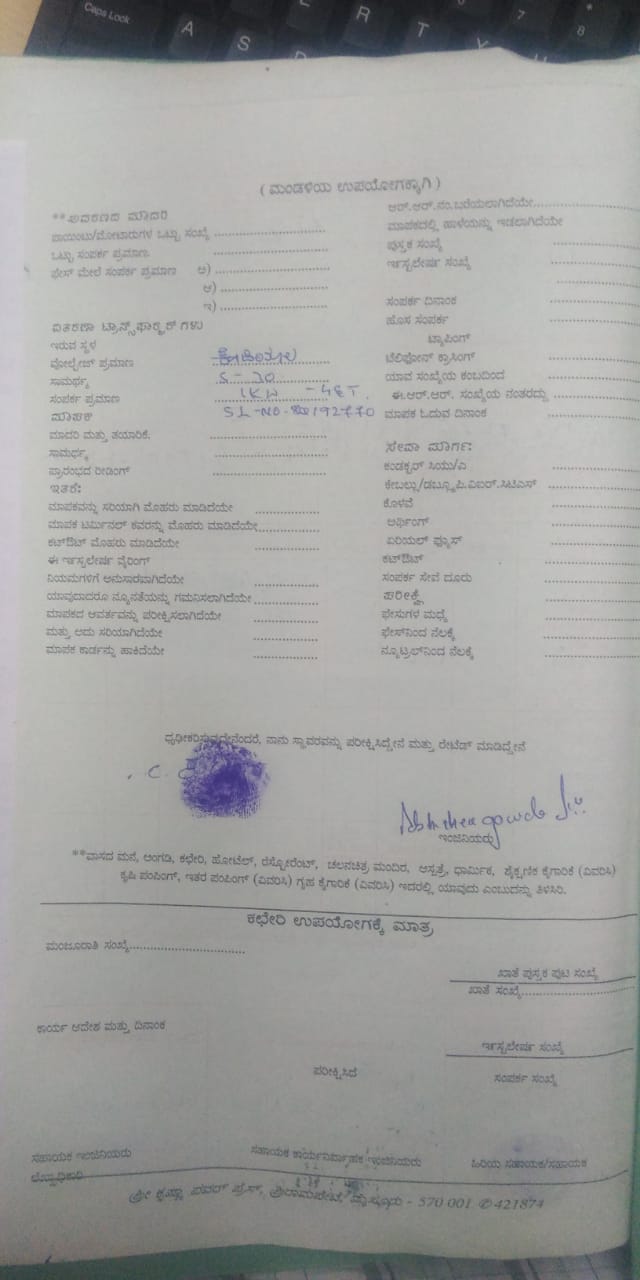 Caps Lock
A S R T 7 8
( ಮಂಡಳಿಯ ಉಪಯೋಗಕ್ಕಾಗಿ )
**ಉಪಕರಣದ ಮಾದರಿ
ಪಾಯಿಂಟು/ಮೋಟಾರುಗಳ ಒಟ್ಟು ಸಂಖ್ಯೆ
ಒಟ್ಟು ಸಂಪರ್ಕ ಪ್ರಮಾಣ
ಫೇಸ್ ಮೇಲೆ ಸಂಪರ್ಕ ಪ್ರಮಾಣ ಅ)
ಆ)
ಇ)
ವಿತರಣಾ ಟ್ರಾನ್ಸ್‌ಫಾರ್ಮರ್‌ಗಳು
ಇರುವ ಸ್ಥಳ
ವೋಲ್ಟೇಜ್ ಪ್ರಮಾಣ
ಸಾಮರ್ಥ್ಯ 5-20
ಸಂಪರ್ಕ ಪ್ರಮಾಣ 1KW
ಮಾಪಕ SL-NO
ಮಾದರಿ ಮತ್ತು ತಯಾರಿಕೆ.
ಸಾಮರ್ಥ್ಯ
ಪ್ರಾರಂಭದ ರೀಡಿಂಗ್
ಇತರೆ:
ಮಾಪಕವನ್ನು ಸರಿಯಾಗಿ ಮೊಹರು ಮಾಡಿದೆಯೇ
ಮಾಪಕ ಟರ್ಮಿನಲ್ ಕವರನ್ನು ಮೊಹರು ಮಾಡಿದೆಯೇ
ಕಟ್‌ಔಟ್ ಮೊಹರು ಮಾಡಿದೆಯೇ
ಈ ಇನ್ಸ್ಟಲೇಷನ್ ವೈರಿಂಗ್
ನಿಯಮಗಳಿಗೆ ಅನುಸಾರವಾಗಿದೆಯೇ
ಯಾವುದಾದರೂ ನ್ಯೂನತೆಯನ್ನು ಗಮನಿಸಲಾಗಿದೆಯೇ
ಮಾಪಕದ ಆವರ್ತವನ್ನು ಪರೀಕ್ಷಿಸಲಾಗಿದೆಯೇ
ಮತ್ತು ಅದು ಸರಿಯಾಗಿದೆಯೇ
ಮಾಪಕ ಕಾರ್ಡನ್ನು ಹಾಕಿದೆಯೇ
ಆರ್.ಆರ್.ನಂ.ಬರೆಯಲಾಗಿದೆಯೇ
ಮಾಪಕದಲ್ಲಿ ಹಾಳೆಯನ್ನು ಇಡಲಾಗಿದೆಯೇ
ಪುಸ್ತಕ ಸಂಖ್ಯೆ
ಇನ್ಸ್ಟಲೇಷನ್ ಸಂಖ್ಯೆ
ಸಂಪರ್ಕ ದಿನಾಂಕ
ಹೊಸ ಸಂಪರ್ಕ
ಟ್ಯಾಪಿಂಗ್
ಟೆಲಿಫೋನ್ ಕ್ರಾಸಿಂಗ್
ಯಾವ ಸಂಖ್ಯೆಯ ಕಂಬದಿಂದ
ಈ.ಆರ್.ಆರ್. ಸಂಖ್ಯೆಯ ನಂತರದ್ದು
ಮಾಪಕ ಓದುವ ದಿನಾಂಕ
ಸೇವಾ ಮಾರ್ಗ:
ಕಂಡಕ್ಟರ್ ಸಿಯು/ಎ
ಕೇಬಲ್ಲು/ಡಬ್ಲ್ಯೂಪಿ.ಐಆರ್.ಸಿಟಿಎಸ್
ಕೊಳವೆ
ಅರ್ಥಿಂಗ್
ಏರಿಯಲ್ ಫ್ಯೂಸ್
ಕಟ್‌ಔಟ್
ಸಂಪರ್ಕ ಸೇವೆ ದೂರು
ಪರೀಕ್ಷೆ
ಫೇಸುಗಳ ಮಧ್ಯೆ
ಫೇಸ್‌ನಿಂದ ನೆಲಕ್ಕೆ
ನ್ಯೂಟ್ರಲ್‌ನಿಂದ ನೆಲಕ್ಕೆ
ಧೃಢೀಕರಿಸುವುದೇನೆಂದರೆ, ನಾನು ಸ್ಥಾವರವನ್ನು ಪರೀಕ್ಷಿಸಿದ್ದೇನೆ ಮತ್ತು ರೇಟೆಡ್ ಮಾಡಿದ್ದೇನೆ
ಇಂಜಿನಿಯರು
**ವಾಸದ ಮನೆ, ಅಂಗಡಿ, ಕಛೇರಿ, ಹೋಟೆಲ್, ರೆಸ್ಟೋರೆಂಟ್, ಚಲನಚಿತ್ರ ಮಂದಿರ, ಆಸ್ಪತ್ರೆ, ಧಾರ್ಮಿಕ, ಶೈಕ್ಷಣಿಕ ಕೈಗಾರಿಕೆ (ವಿವರಿಸಿ)
ಕೃಷಿ ಪಂಪಿಂಗ್, ಇತರ ಪಂಪಿಂಗ್ (ವಿವರಿಸಿ) ಗೃಹ ಕೈಗಾರಿಕೆ (ವಿವರಿಸಿ) ಇದರಲ್ಲಿ ಯಾವುದು ಎಂಬುದನ್ನು ತಿಳಿಸಿರಿ.
ಕಛೇರಿ ಉಪಯೋಗಕ್ಕೆ ಮಾತ್ರ
ಮಂಜೂರಾತಿ ಸಂಖ್ಯೆ
ಖಾತೆ ಪುಸ್ತಕ ಪುಟ ಸಂಖ್ಯೆ
ಖಾತೆ ಸಂಖ್ಯೆ
ಕಾರ್ಯ ಆದೇಶ ಮತ್ತು ದಿನಾಂಕ
ಇನ್ಸ್ಟಲೇಷನ್ ಸಂಖ್ಯೆ
ಪರೀಕ್ಷಿಸಿದೆ
ಸಂಪರ್ಕ ಸಂಖ್ಯೆ
ಸಹಾಯಕ ಇಂಜಿನಿಯರು
ಲೆಕ್ಕಾಧಿಕಾರಿ
ಸಹಾಯಕ ಕಾರ್ಯನಿರ್ವಾಹಕ ಇಂಜಿನಿಯರು
ಹಿರಿಯ ಸಹಾಯಕ/ಸಹಾಯಕ
ಶ್ರೀ ಕೃಷ್ಣಾ ಪವರ್ ಪ್ರೆಸ್, ಮೈಸೂರು - 570 001 ✆ 421874